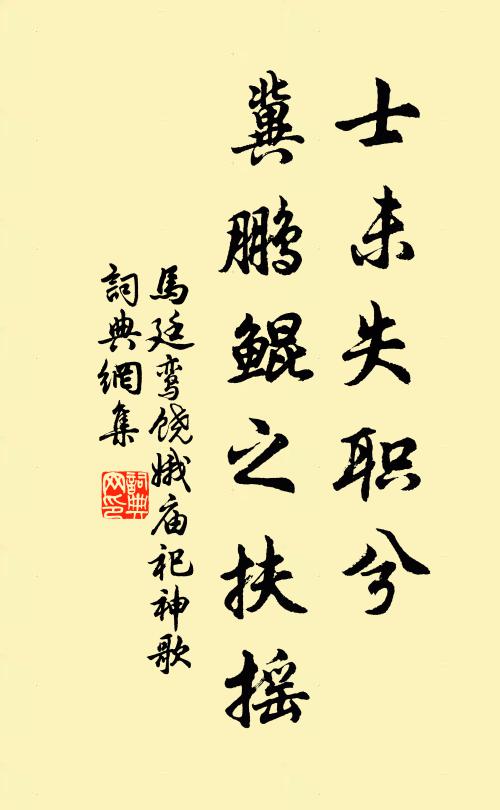 士未失职兮
冀鹏鲲之扶摇
馬廷鸾饶娥庙祀神歌
詞典網集
詞典
网印